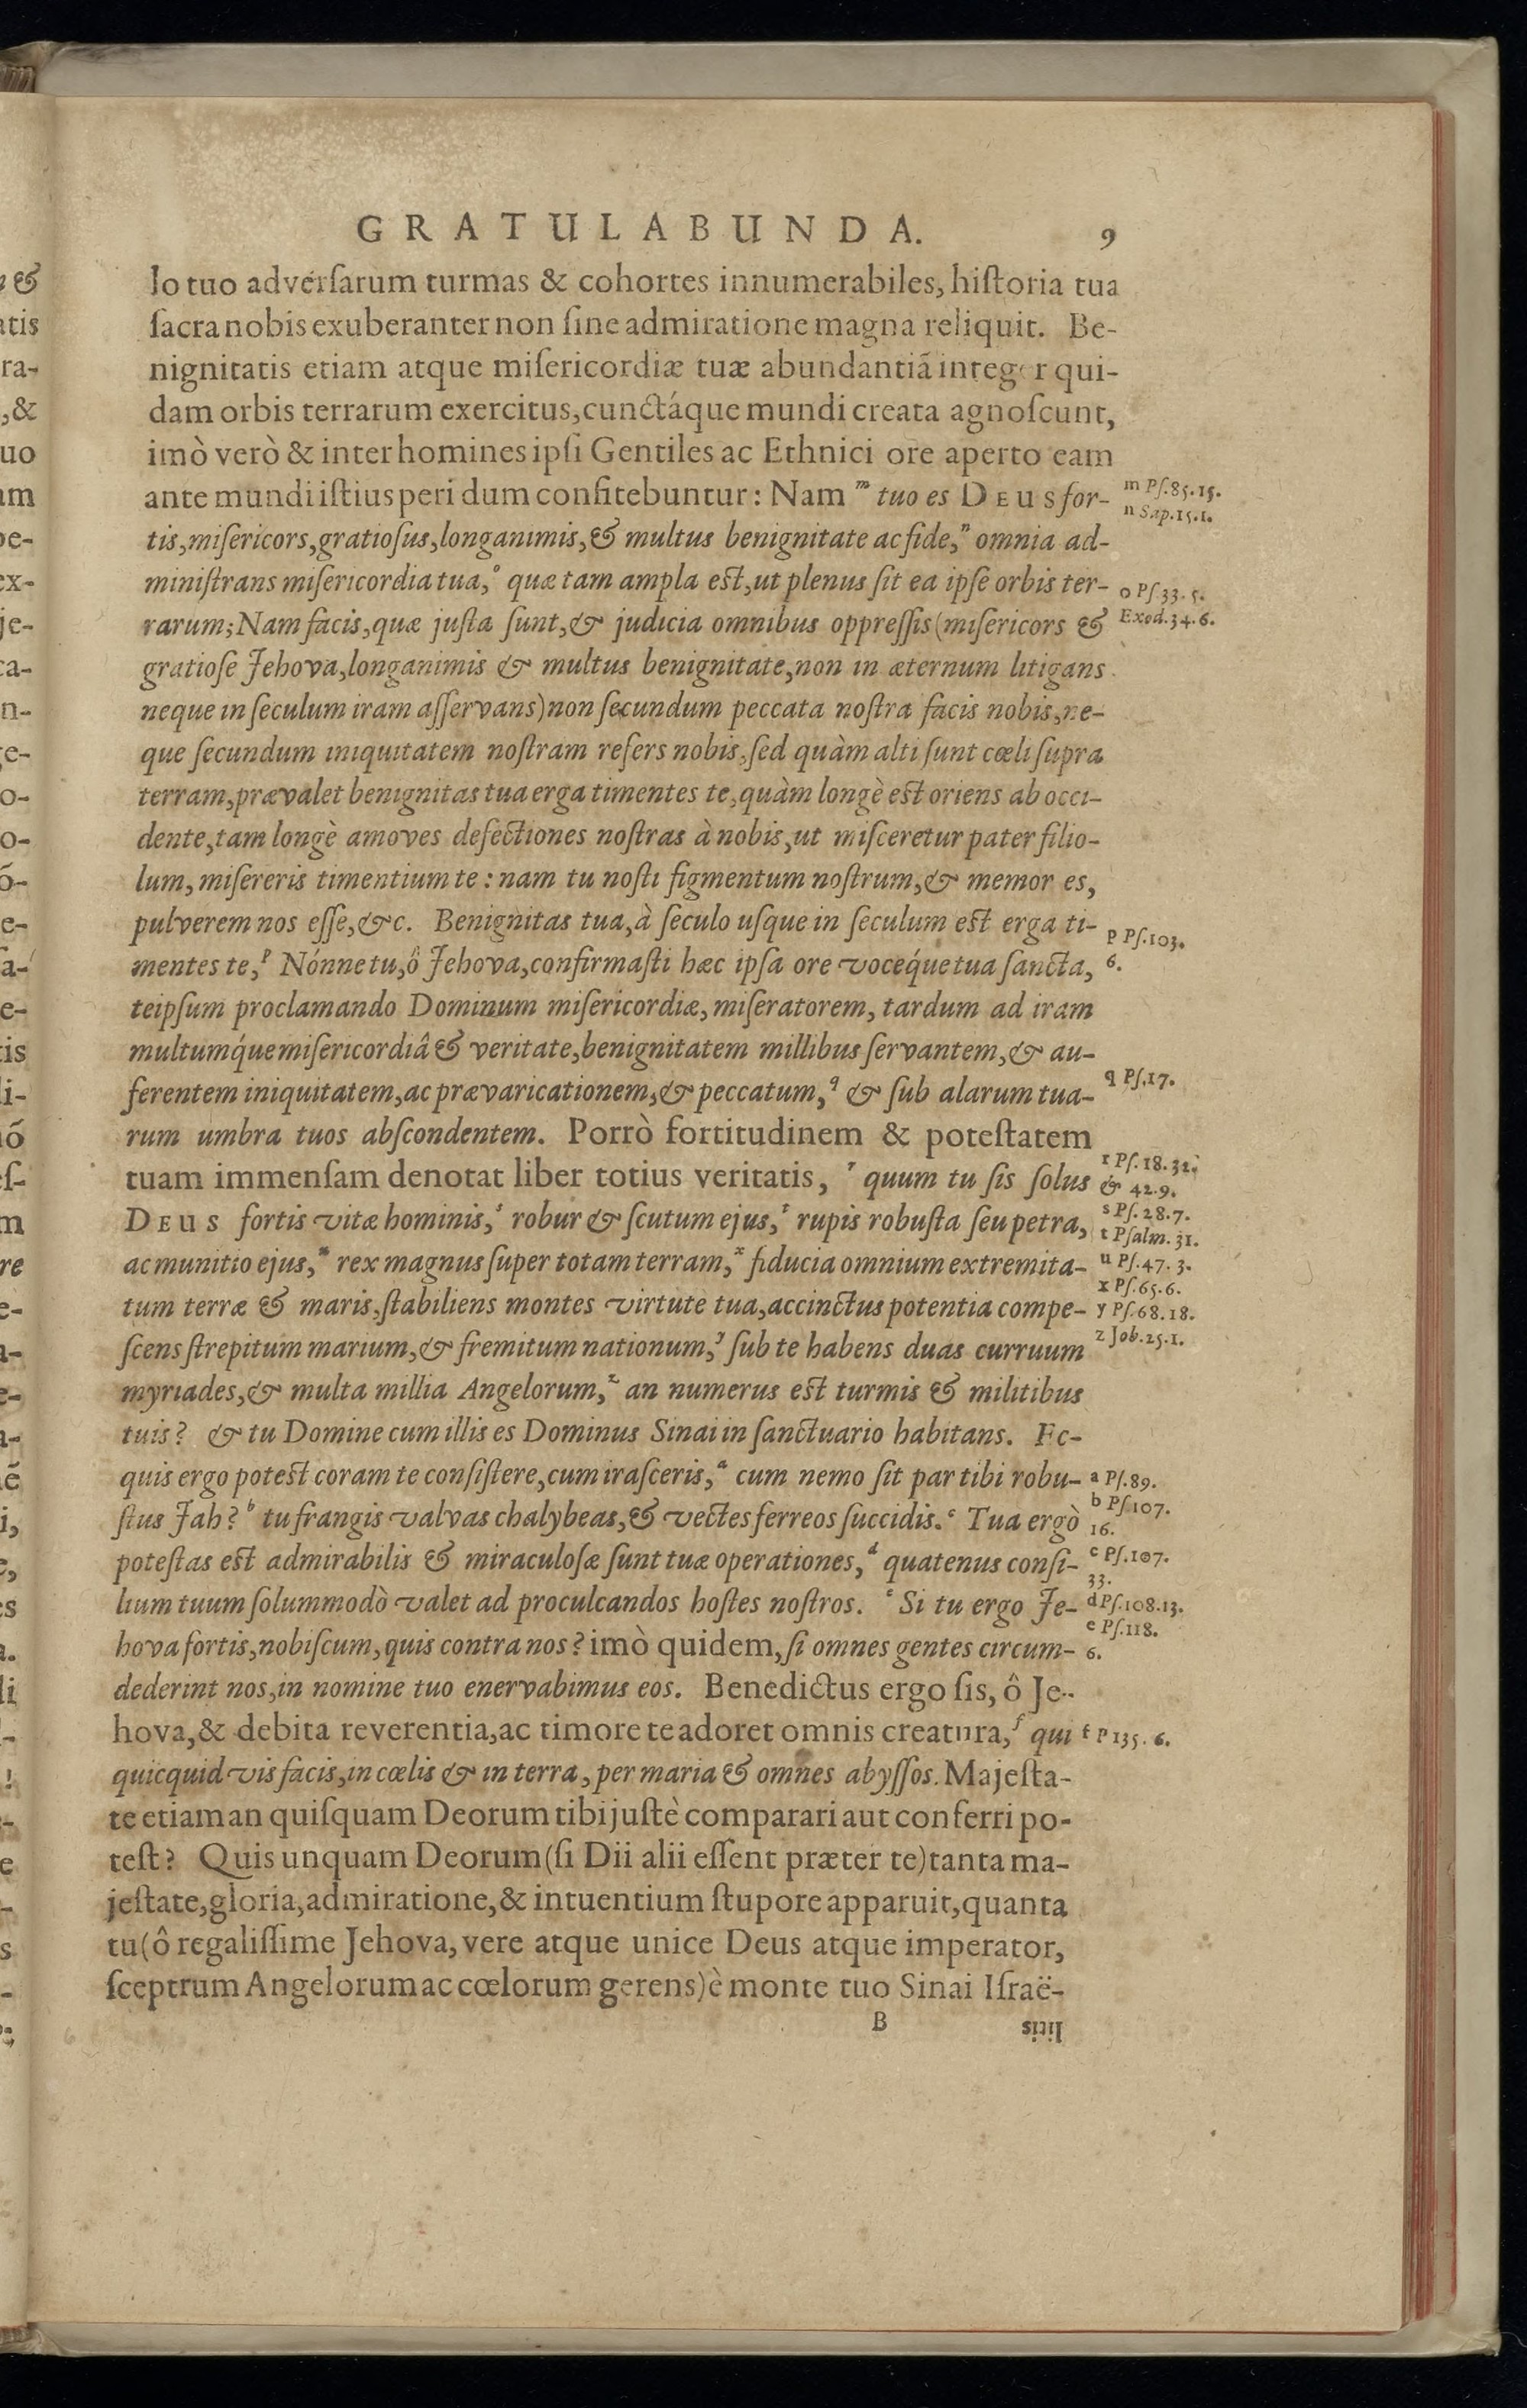 GRATULABUNDA. 9
lo tuo adverſarum turmas & cohortes innumerabiles, hiſtoria tua
ſacra nobis exuberanter non ſine admiratione magna reliquit. Be-
nignitatis etiam atque miſericordiæ tuæ abundantiā integer qui-
dam orbis terrarum exercitus, cunctáque mundi creata agnoſcunt,
imò verò & inter homines ipſi Gentiles ac Ethnici ore aperto eam
ante mundi iſtius peri dum confitebuntur: Nam ᵐ tuo es DEUS for-
m Pſ.85.15.
n Sap.15.1.
tis, miſericors, gratioſus, longanimis, & multus benignitate ac fide, ⁿ omnia ad-
miniſtrans miſericordia tua, ᵒ quæ tam ampla eſt, ut plenus ſit ea ipſe orbis ter-
o Pſ 33. 5.
Exod.34.6.
rarum; Nam facis, quæ juſta ſunt, & judicia omnibus oppreſſis (miſericors &
gratioſe Jehova, longanimis & multus benignitate, non in æternum litigans
neque in ſeculum iram aſſervans) non ſecundum peccata noſtra facis nobis, ne-
que ſecundum iniquitatem noſtram refers nobis, ſed quàm alti ſunt cœli ſupra
terram, prævalet benignitas tua erga timentes te, quàm longè eſt oriens ab occi-
dente, tam longè amoves defectiones noſtras à nobis, ut miſceretur pater filio-
lum, miſereris timentium te : nam tu noſti figmentum noſtrum, & memor es,
pulverem nos eſſe, &c. Benignitas tua, à ſeculo uſque in ſeculum eſt erga ti-
p Pſ.103.
6.
mentes te, ᵖ Nónne tu, ô Jehova, confirmaſti hæc ipſa ore vocéque tua ſancta,
teipſum proclamando Dominum miſericordiæ, miſeratorem, tardum ad iram
multumq́ue miſericordiâ & veritate, benignitatem millibus ſervantem, & au-
ferentem iniquitatem, ac prævaricationem, & peccatum, q & ſub alarum tua-
q Pſ.17.
rum umbra tuos abſcondentem. Porrò fortitudinem & poteſtatem
tuam immenſam denotat liber totius veritatis, ʳ quum tu ſis ſolus
r Pſ.18.32.
& 42.9.
DEUS fortis vitæ hominis, ˢ robur & ſcutum ejus, ᵗ rupis robuſta ſeu petra,
s Pſ.28.7.
t Pſalm.31.
ac munitio ejus, ᵘ rex magnus ſuper totam terram, ˣ fiducia omnium extremita-
u Pſ.47.3.
x Pſ.65.6.
tum terræ & maris, ſtabiliens montes virtute tua, accinctus potentia compe-
y Pſ.68.18.
ſcens ſtrepitum marium, & fremitum nationum, ʸ ſub te habens duas curruum
z Job.25.1.
myriades, & multa millia Angelorum, ᶻ an numerus eſt turmis & militibus
tuis? & tu Domine cum illis es Dominus Sinai in ſanctuario habitans. Ec-
quis ergo poteſt coram te conſiſtere, cum iraſceris, ᵃ cum nemo ſit par tibi robu-
a Pſ.89.
ſtus Jah? ᵇ tu frangis valvas chalybeas, & vectes ferreos ſuccidis. ᶜ Tua ergò
b Pſ.107.
16.
poteſtas eſt admirabilis & miraculoſæ ſunt tuæ operationes, ᵈ quatenus conſi-
c Pſ.107.
33.
lium tuum ſolummodò valet ad proculcandos hoſtes noſtros. ᵉ Si tu ergo Je-
d Pſ.108.13.
e Pſ.118.
6.
hova fortis, nobiſcum, quis contra nos? imò quidem, ſi omnes gentes circum-
dederint nos, in nomine tuo enervabimus eos. Benedictus ergo ſis, ô Je-
hova, & debita reverentia, ac timore te adoret omnis creatura, ᶠ qui
f P 135. 6.
quicquid vis facis, in cœlis & in terra, per maria & omnes abyſſos. Majeſta-
te etiam an quiſquam Deorum tibi juſtè comparari aut conferri po-
teſt? Quis unquam Deorum (ſi Dii alii eſſent præter te) tanta ma-
jeſtate, gloria, admiratione, & intuentium ſtupore apparuit, quanta
tu (ô regaliſſime Jehova, vere atque unice Deus atque imperator,
ſceptrum Angelorum ac cœlorum gerens) è monte tuo Sinai Iſraë-
B litis